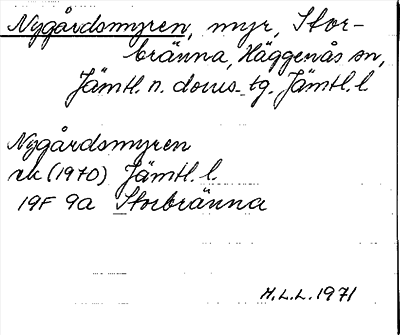 Nygårdsmyren, myr, Stor-
bränna, Häggenås sn,
Jämtl. n. doms. tg. Jämtl. l
Nygårdsmyren
rk (1970) Jämtl. l.
19F 9a Storbränna
H.L.L. 1971